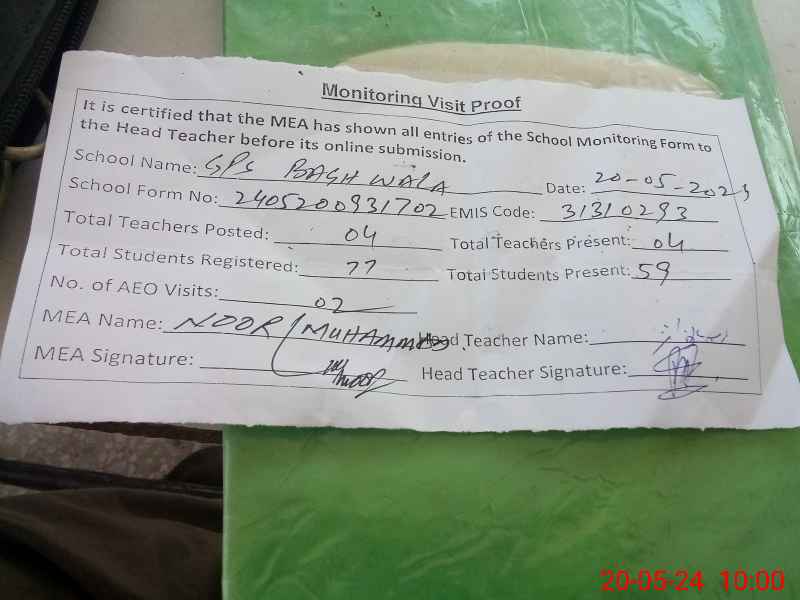 Monitoring Visit Proof
It is certified that the MEA has shown all entries of the School Monitoring Form to
the Head Teacher before its online submission.
School Name: GPS BAGHWALA Date: 20-05-2024
School Form No: 2405200931702 EMIS Code: 31310293
Total Teachers Posted: 04 Total Teachers Present: 04
Total Students Registered: 77 Total Students Present: 59
No. of AEO Visits: 02
MEA Name: NOOR MUHAMMAD Head Teacher Name:
MEA Signature: Head Teacher Signature:
20-05-24 10:00